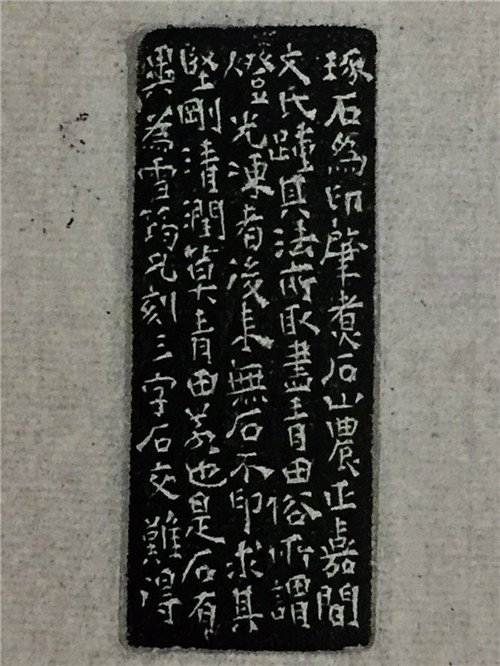 琢石為印肇煮石山農正嘉間
文氏踵其法所取盡青田俗所謂
燈光凍者後來無石不印求其
堅剛清潤莫青田若也是石有
異為雪筠兄刻三字石交難得